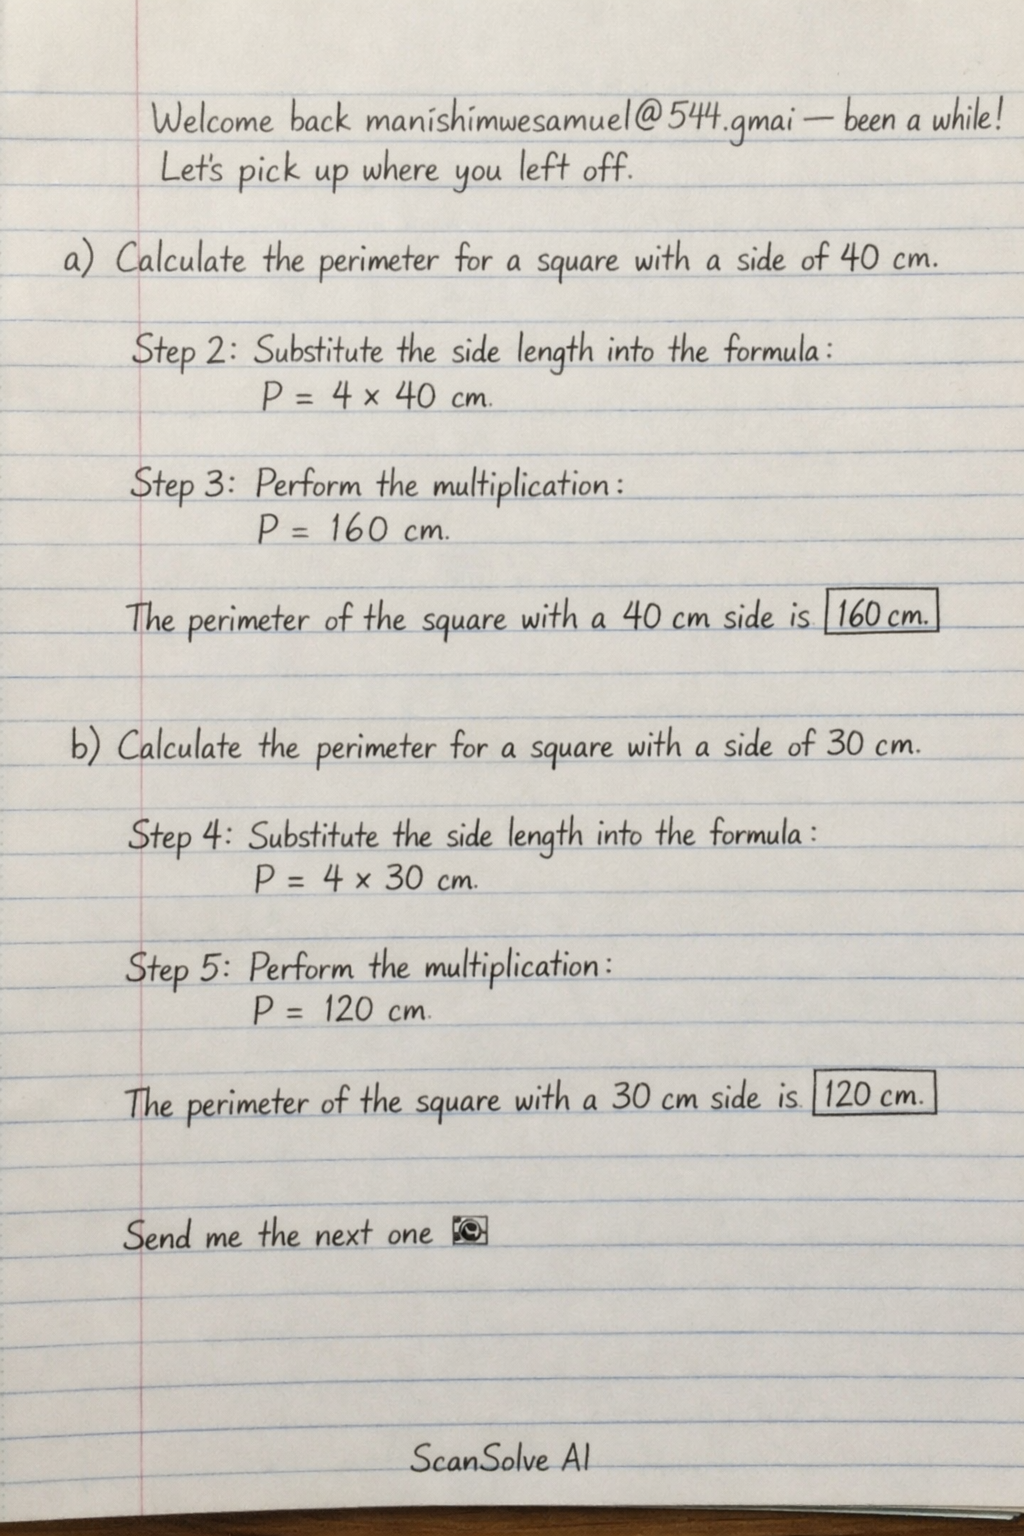 Welcome back manishimwesamuel@544.gmai — been a while!
Let's pick up where you left off.
a) Calculate the perimeter for a square with a side of 40 cm.
Step 2: Substitute the side length into the formula:
P = 4 × 40 cm.
Step 3: Perform the multiplication:
P = 160 cm.
The perimeter of the square with a 40 cm side is 160 cm.
b) Calculate the perimeter for a square with a side of 30 cm.
Step 4: Substitute the side length into the formula:
P = 4 × 30 cm.
Step 5: Perform the multiplication:
P = 120 cm.
The perimeter of the square with a 30 cm side is 120 cm.
Send me the next one
ScanSolve AI